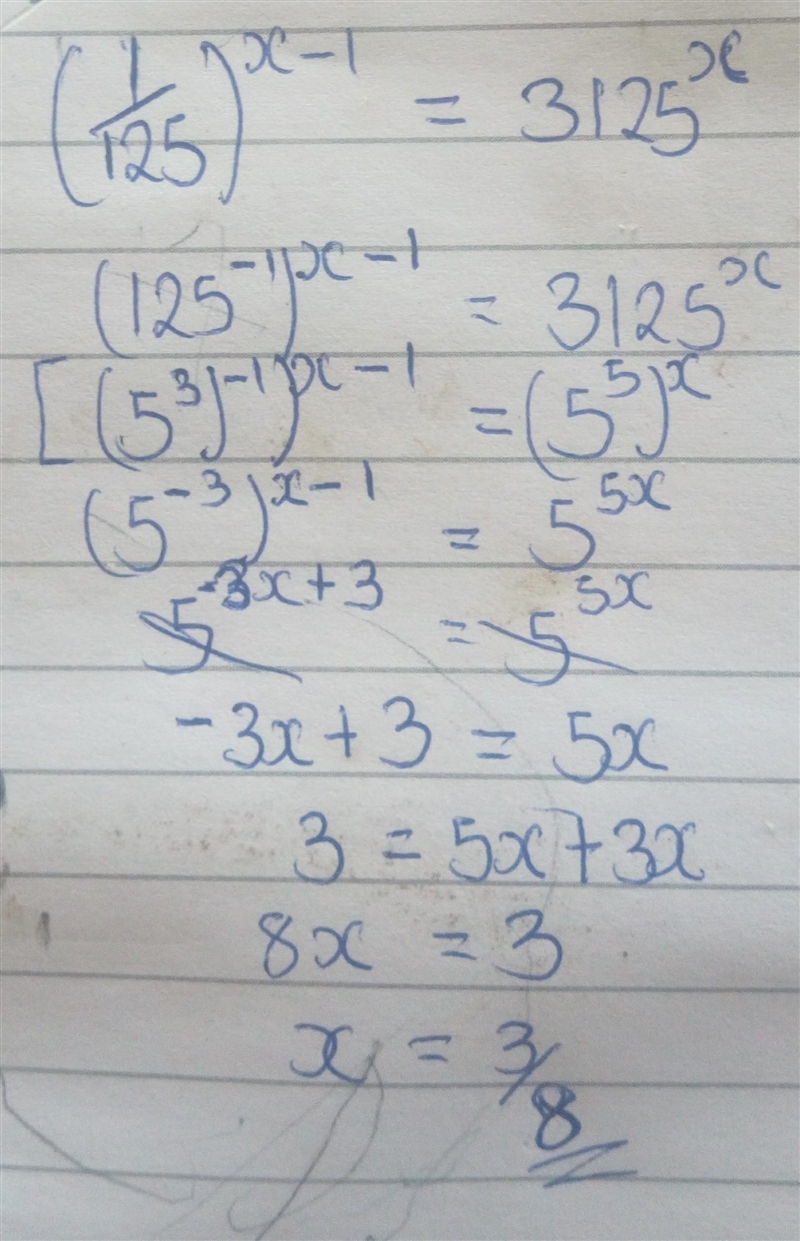 (1/125)^{x-1} = 3125^x
(125^{-1})^{x-1} = 3125^x
[(5^3)^{-1})^{x-1} = (5^5)^x
(5^{-3})^{x-1} = 5^{5x}
5^{-3x+3} = 5^{5x}
-3x + 3 = 5x
3 = 5x + 3x
8x = 3
x = 3/8